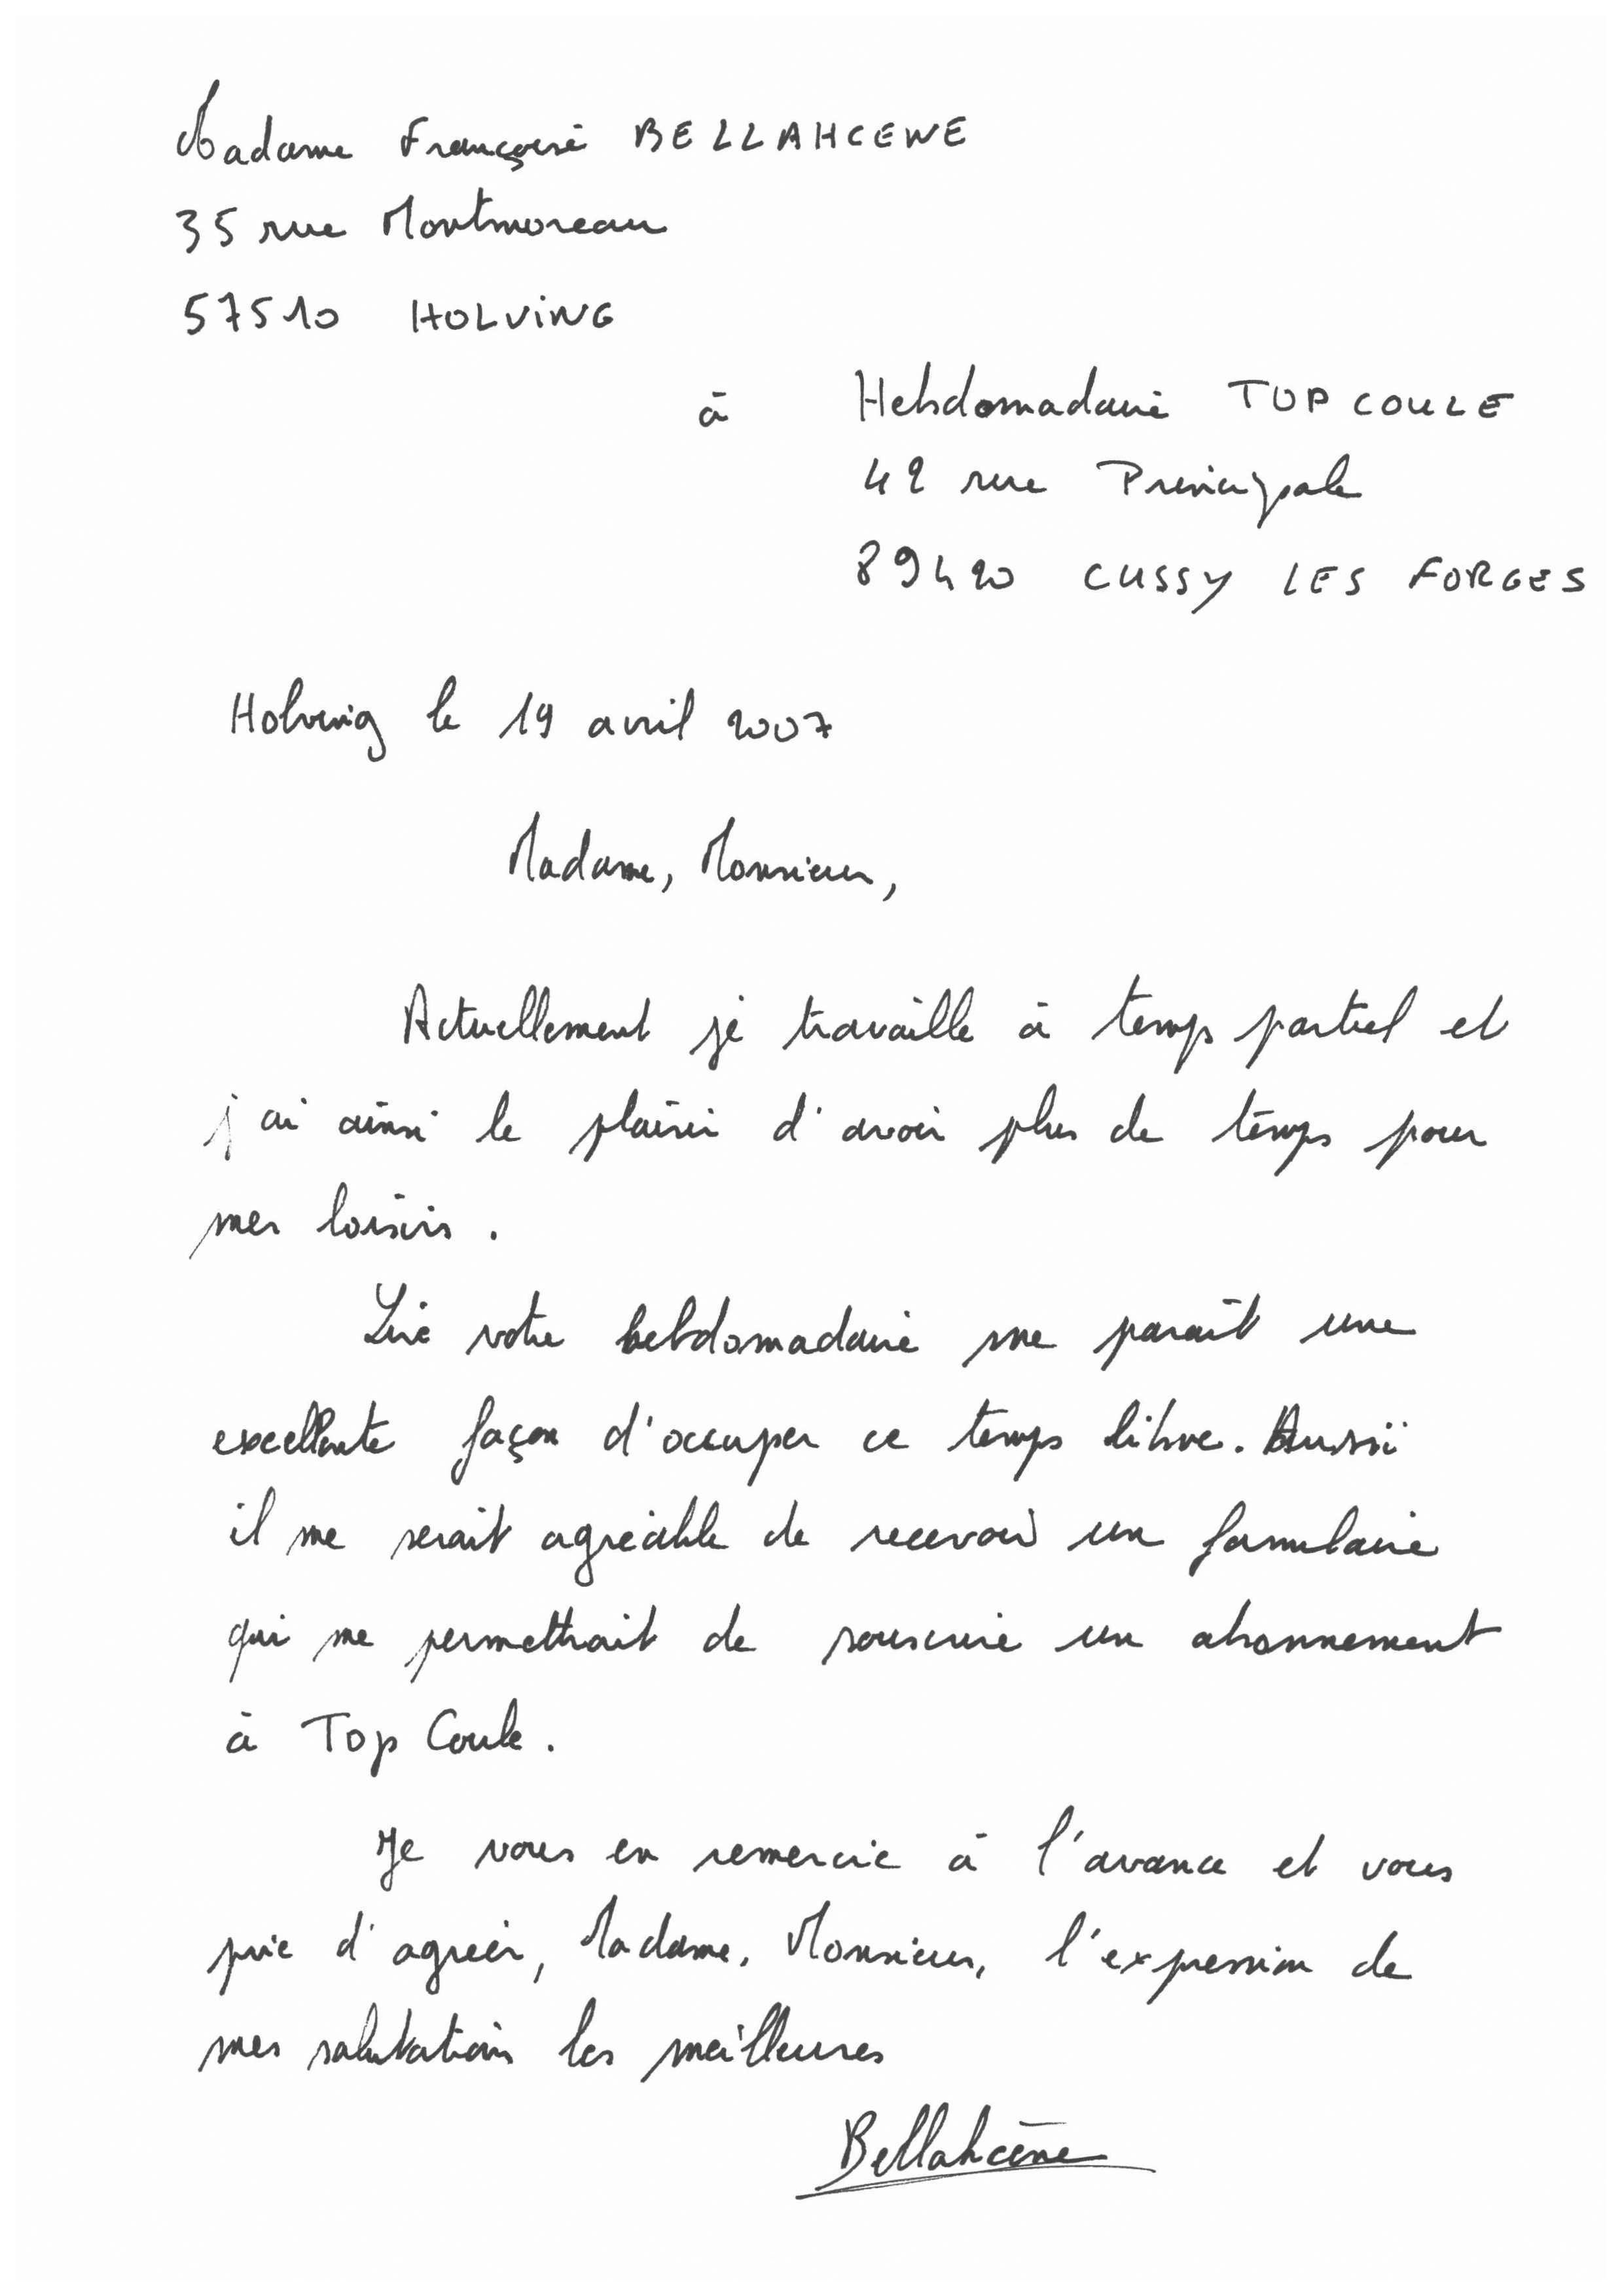 Madame Françoise BELLAHCENE
35 rue Montmoreau
57510 HOLVING
à Hebdomadaire TOP COULE
42 rue Principale
89420 CUSSY LES FORGES
Holving le 19 avril 2007
Madame, Monsieur,
Actuellement je travaille à temps partiel et
j'ai ainsi le plaisir d'avoir plus de temps pour
mes loisirs.
Lire votre hebdomadaire me paraît une
excellente façon d'occuper ce temps libre. Aussi
il me serait agréable de recevoir un formulaire
qui me permettrait de souscrire un abonnement
à Top Coule.
Je vous en remercie à l'avance et vous
prie d'agréer, Madame, Monsieur, l'expression de
mes salutations les meilleures
Bellahcène